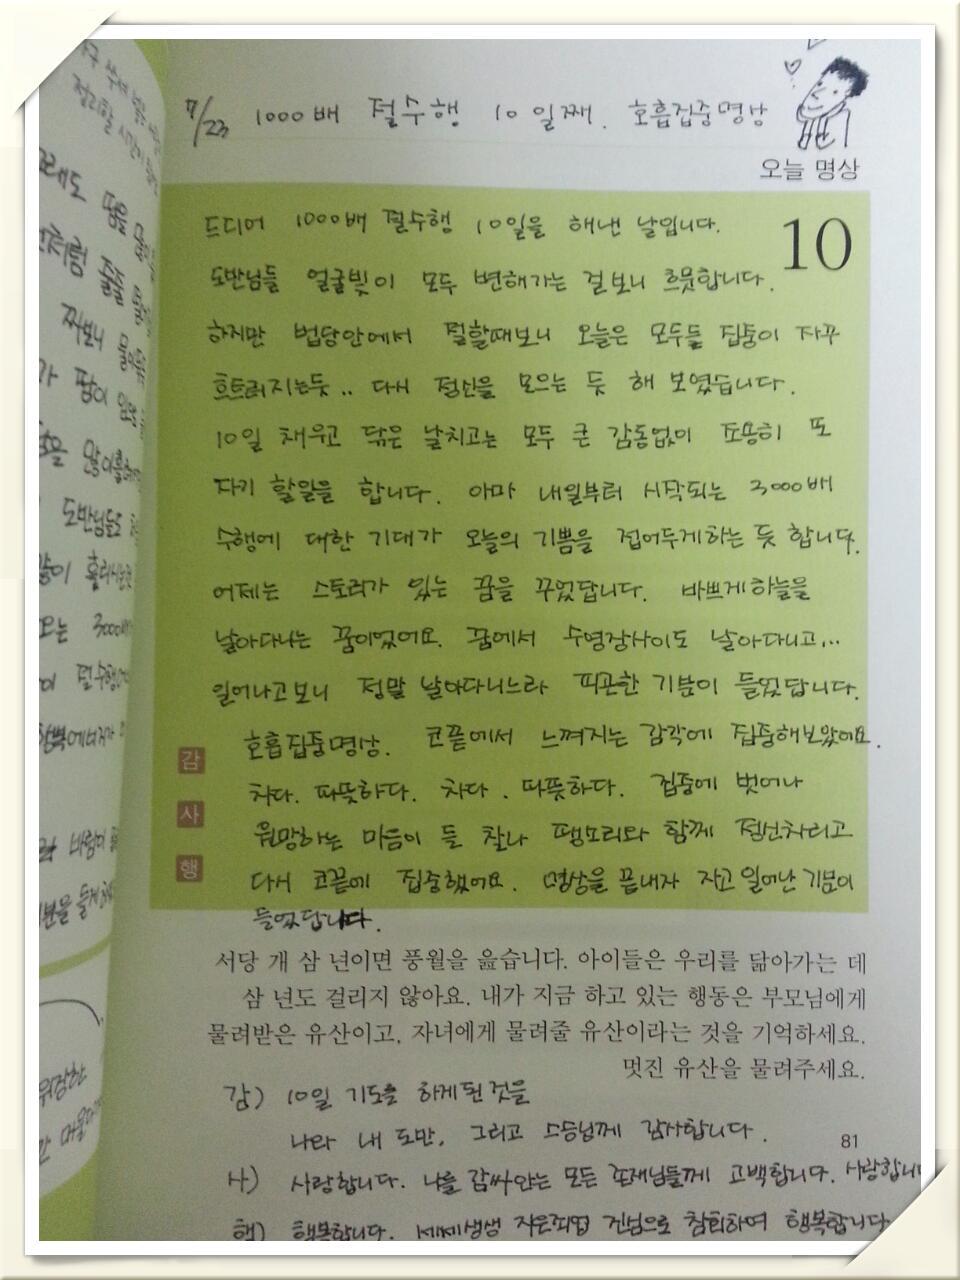 7/23 1000배 절수행 10일째. 호흡집중명상
오늘 명상
10
드디어 1000배 절수행 10일을 해낸 날입니다.
도반님들 얼굴빛이 모두 변해가는 걸보니 흐뭇합니다.
하지만 법당안에서 절할때보니 오늘은 모두들 집중이 자꾸
흐트러지는듯.. 다시 정신을 모으는 듯 해 보였습니다.
10일 채우고 닦은 날치고는 모두 큰 감동없이 조용히 또
자기 할일을 합니다. 아마 내일부터 시작되는 3000배
수행에 대한 기대가 오늘의 기쁨을 접어두게하는 듯 합니다.
어제는 스토리가 있는 꿈을 꾸었답니다. 바쁘게하늘을
날아다니는 꿈이었어요. 꿈에서 수영장사이도 날아다니고...
일어나고보니 정말 날아다니느라 피곤한 기분이 들었답니다.
호흡집중명상. 코끝에서 느껴지는 감각에 집중해보았어요.
차다. 따뜻하다. 차다. 따뜻하다. 집중에 벗어나
원망하는 마음이 들 찰나 땡소리와 함께 정신차리고
다시 코끝에 집중했어요. 명상을 끝내자 자고 일어난 기분이
들었답니다.
감
사
행
서당 개 삼 년이면 풍월을 읊습니다. 아이들은 우리를 닮아가는 데
삼 년도 걸리지 않아요. 내가 지금 하고 있는 행동은 부모님에게
물려받은 유산이고, 자녀에게 물려줄 유산이라는 것을 기억하세요.
멋진 유산을 물려주세요.
감) 10일 기도를 하게된것을
나와 내 도반, 그리고 스승님께 감사합니다.
81
사) 사랑합니다. 나를 감싸안는 모든 존재님들께 고백합니다. 사랑합니다
행) 행복합니다. 세세생생 지은죄업 진심으로 참회하여 행복합니다